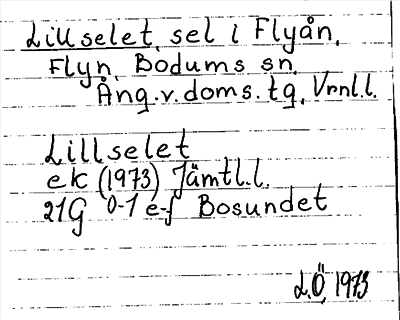 Lillselet, sel i Flyån,
Flyn, Bodums sn,
Ång.v.doms.tg, Vrnl.l.
Lillselet
ek (1973) Jämtl.l.
21G 0-1 e-f Bosundet
L.Ö 1973